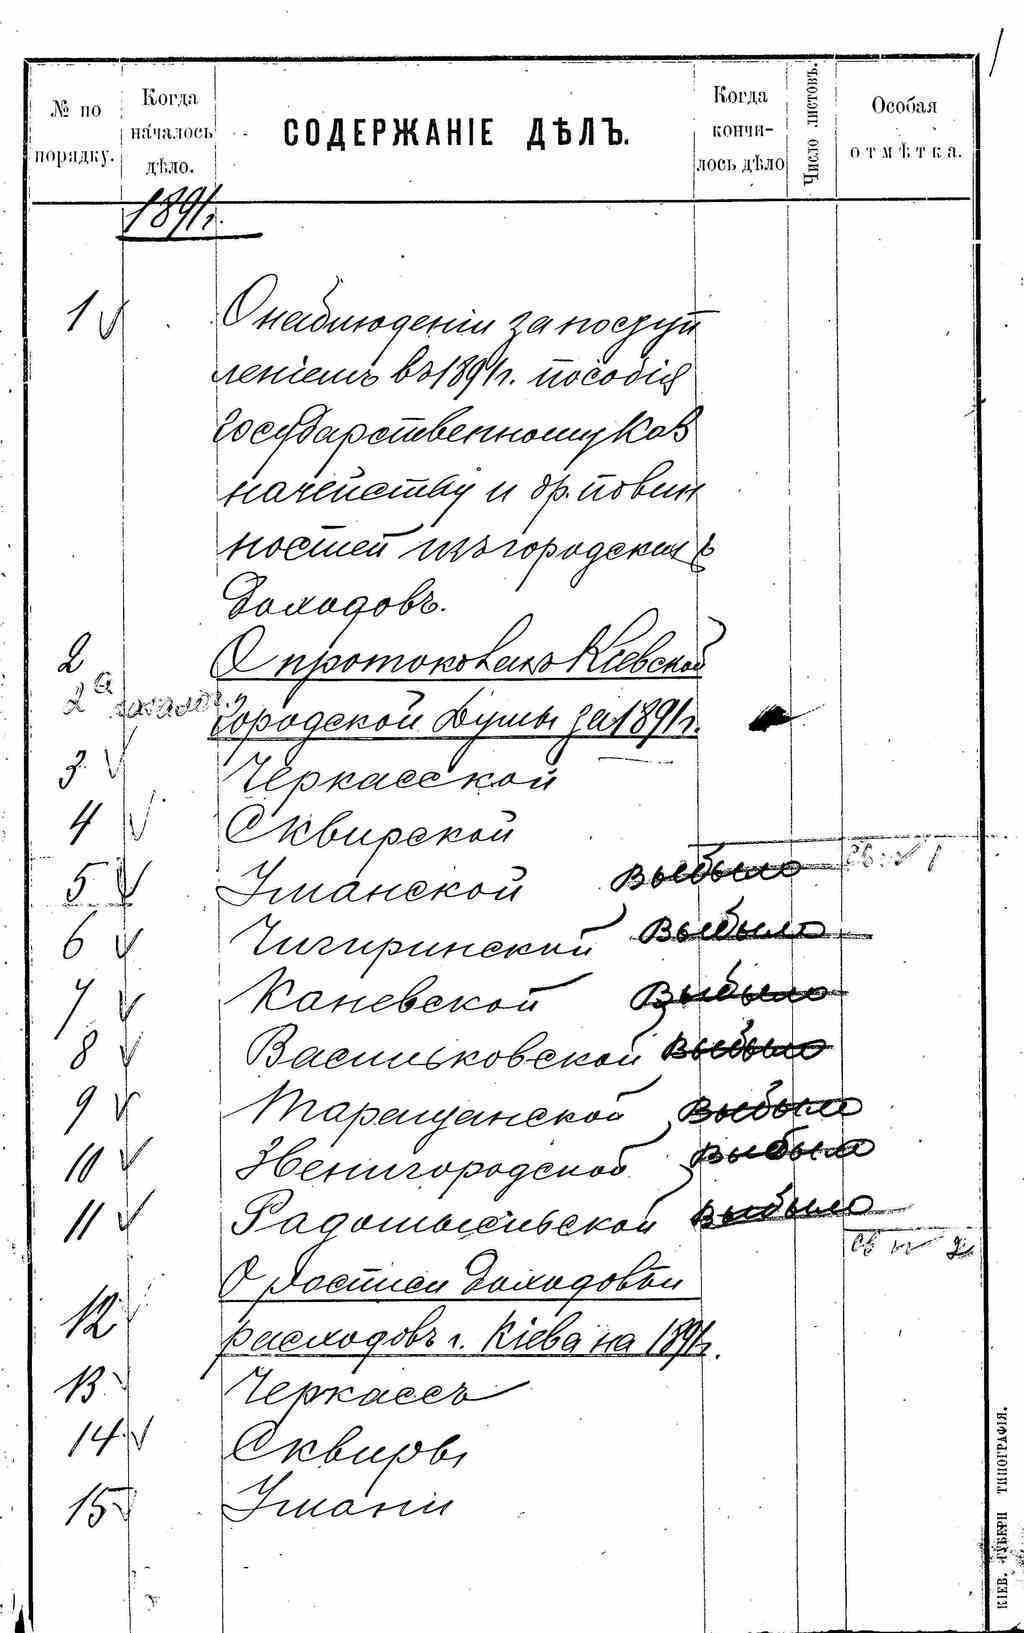 1
№ по порядку.
Когда началось дѣло.
СОДЕРЖАНІЕ ДѢЛЪ.
Когда кончилось дѣло
Число листовъ.
Особая отмѣтка.
1891 г.
1 О наблюденіи за поступ
леніемъ въ 1891 г. пособія
Государственному Каз
начейству и др. повин
ностей изъ городскихъ
доходовъ.
2 О протоколахъ Кіевской
2а
Городской Думы за 1891 г.
3 Черкасской
4 Сквирской
5 Уманской выбыло св. № 1
6 Чигиринской выбыло
7 Каневской выбыло
8 Васильковской выбыло
9 Таращанской выбыло
10 Звенигородской выбыло
11 Радомысльской выбыло
св № 2
12 О росписи доходовъ и
расходовъ г. Кіева на 1891 г.
13 Черкассъ
14 Сквиры
15 Умани
КІЕВ. ГУБЕРН ТИПОГРАФІЯ.